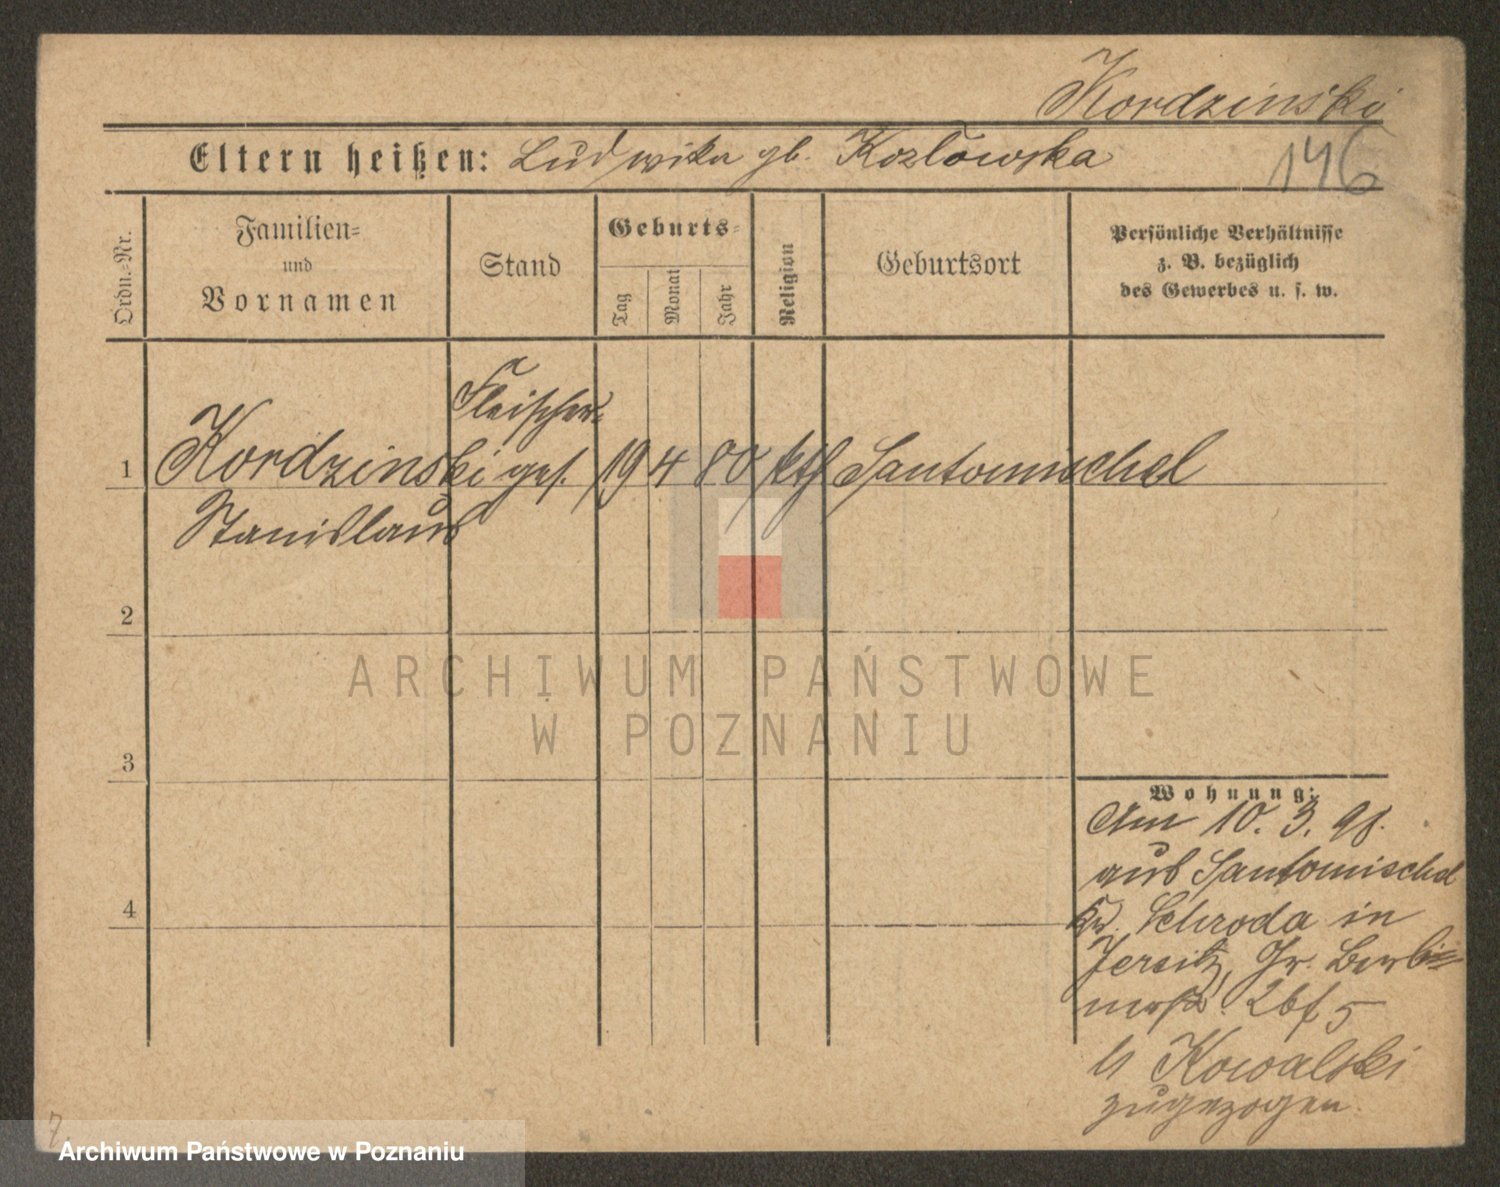 Kordzinski
Eltern heißen: Ludwika gb. Kozłowska
146
Ordn.-Nr.
Familien-
und
Vornamen
Stand
Geburts-
Tag
Monat
Jahr
Religion
Geburtsort
Persönliche Verhältnisse
z. B. bezüglich
des Gewerbes u. s. w.
Fleischer-
1 Kordzinski ges. 19 4 80 kth Santomischel
Stanislaus
2
3
4
Wohnung:
Am 10. 3. 98.
aus Santomischel
Kr. Schroda in
Jersitz, Gr. Berli-
nerstr. 5
Kowalski
zugezogen.
7.
ARCHIWUM PAŃSTWOWE
W POZNANIU
Archiwum Państwowe w Poznaniu